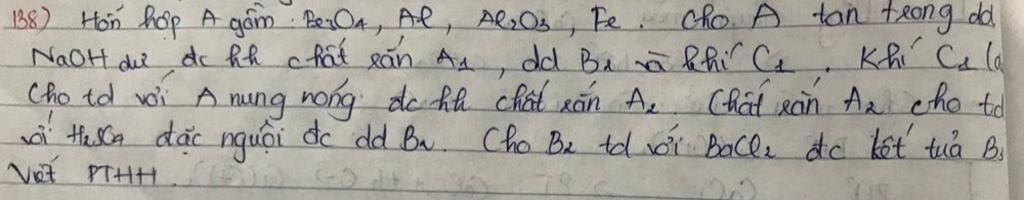 138) Hỗn hợp A gồm Fe3O4, Al, Al2O3, Fe. Cho A tan trong dd
NaOH dư dc hh chất rắn A1, dd B1 và khí C1. Khí C1
cho td với A nung nóng dc hh chất rắn A2. Chất rắn A2 cho td
với H2SO4 đặc nguội dc dd B2. Cho B2 td với BaCl2 dc kết tủa B3
Viết PTHH.